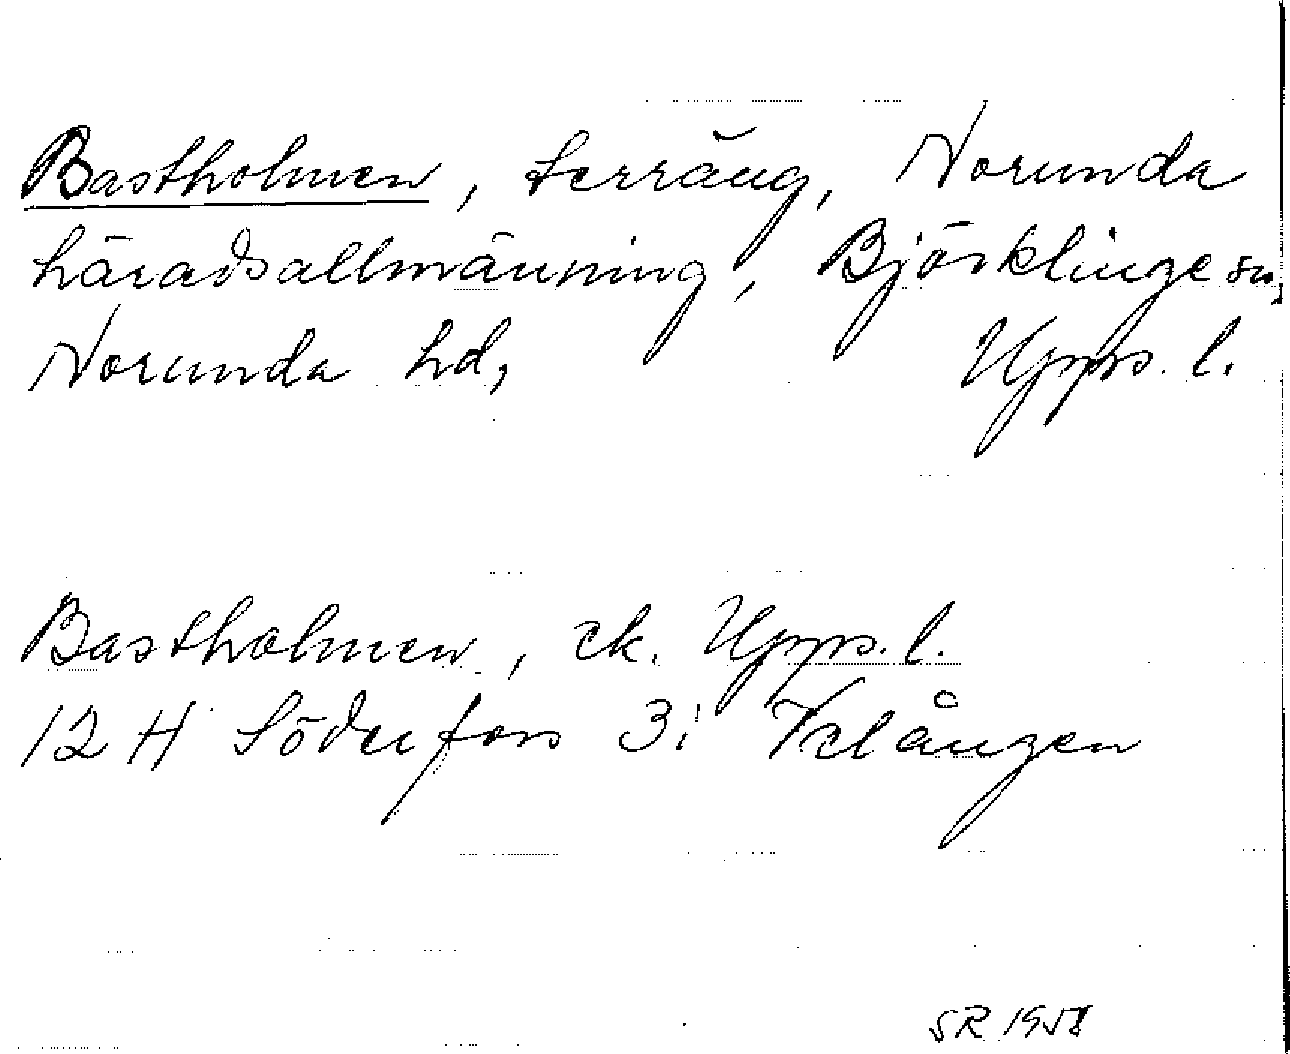 Bastholmen, terräng, Norunda
häradsallmänning, Björklinge sn,
Norunda hd, Upps. l.
Bastholmen, ek. Upps. l.
12 H Söderfors 3i
SR 1958